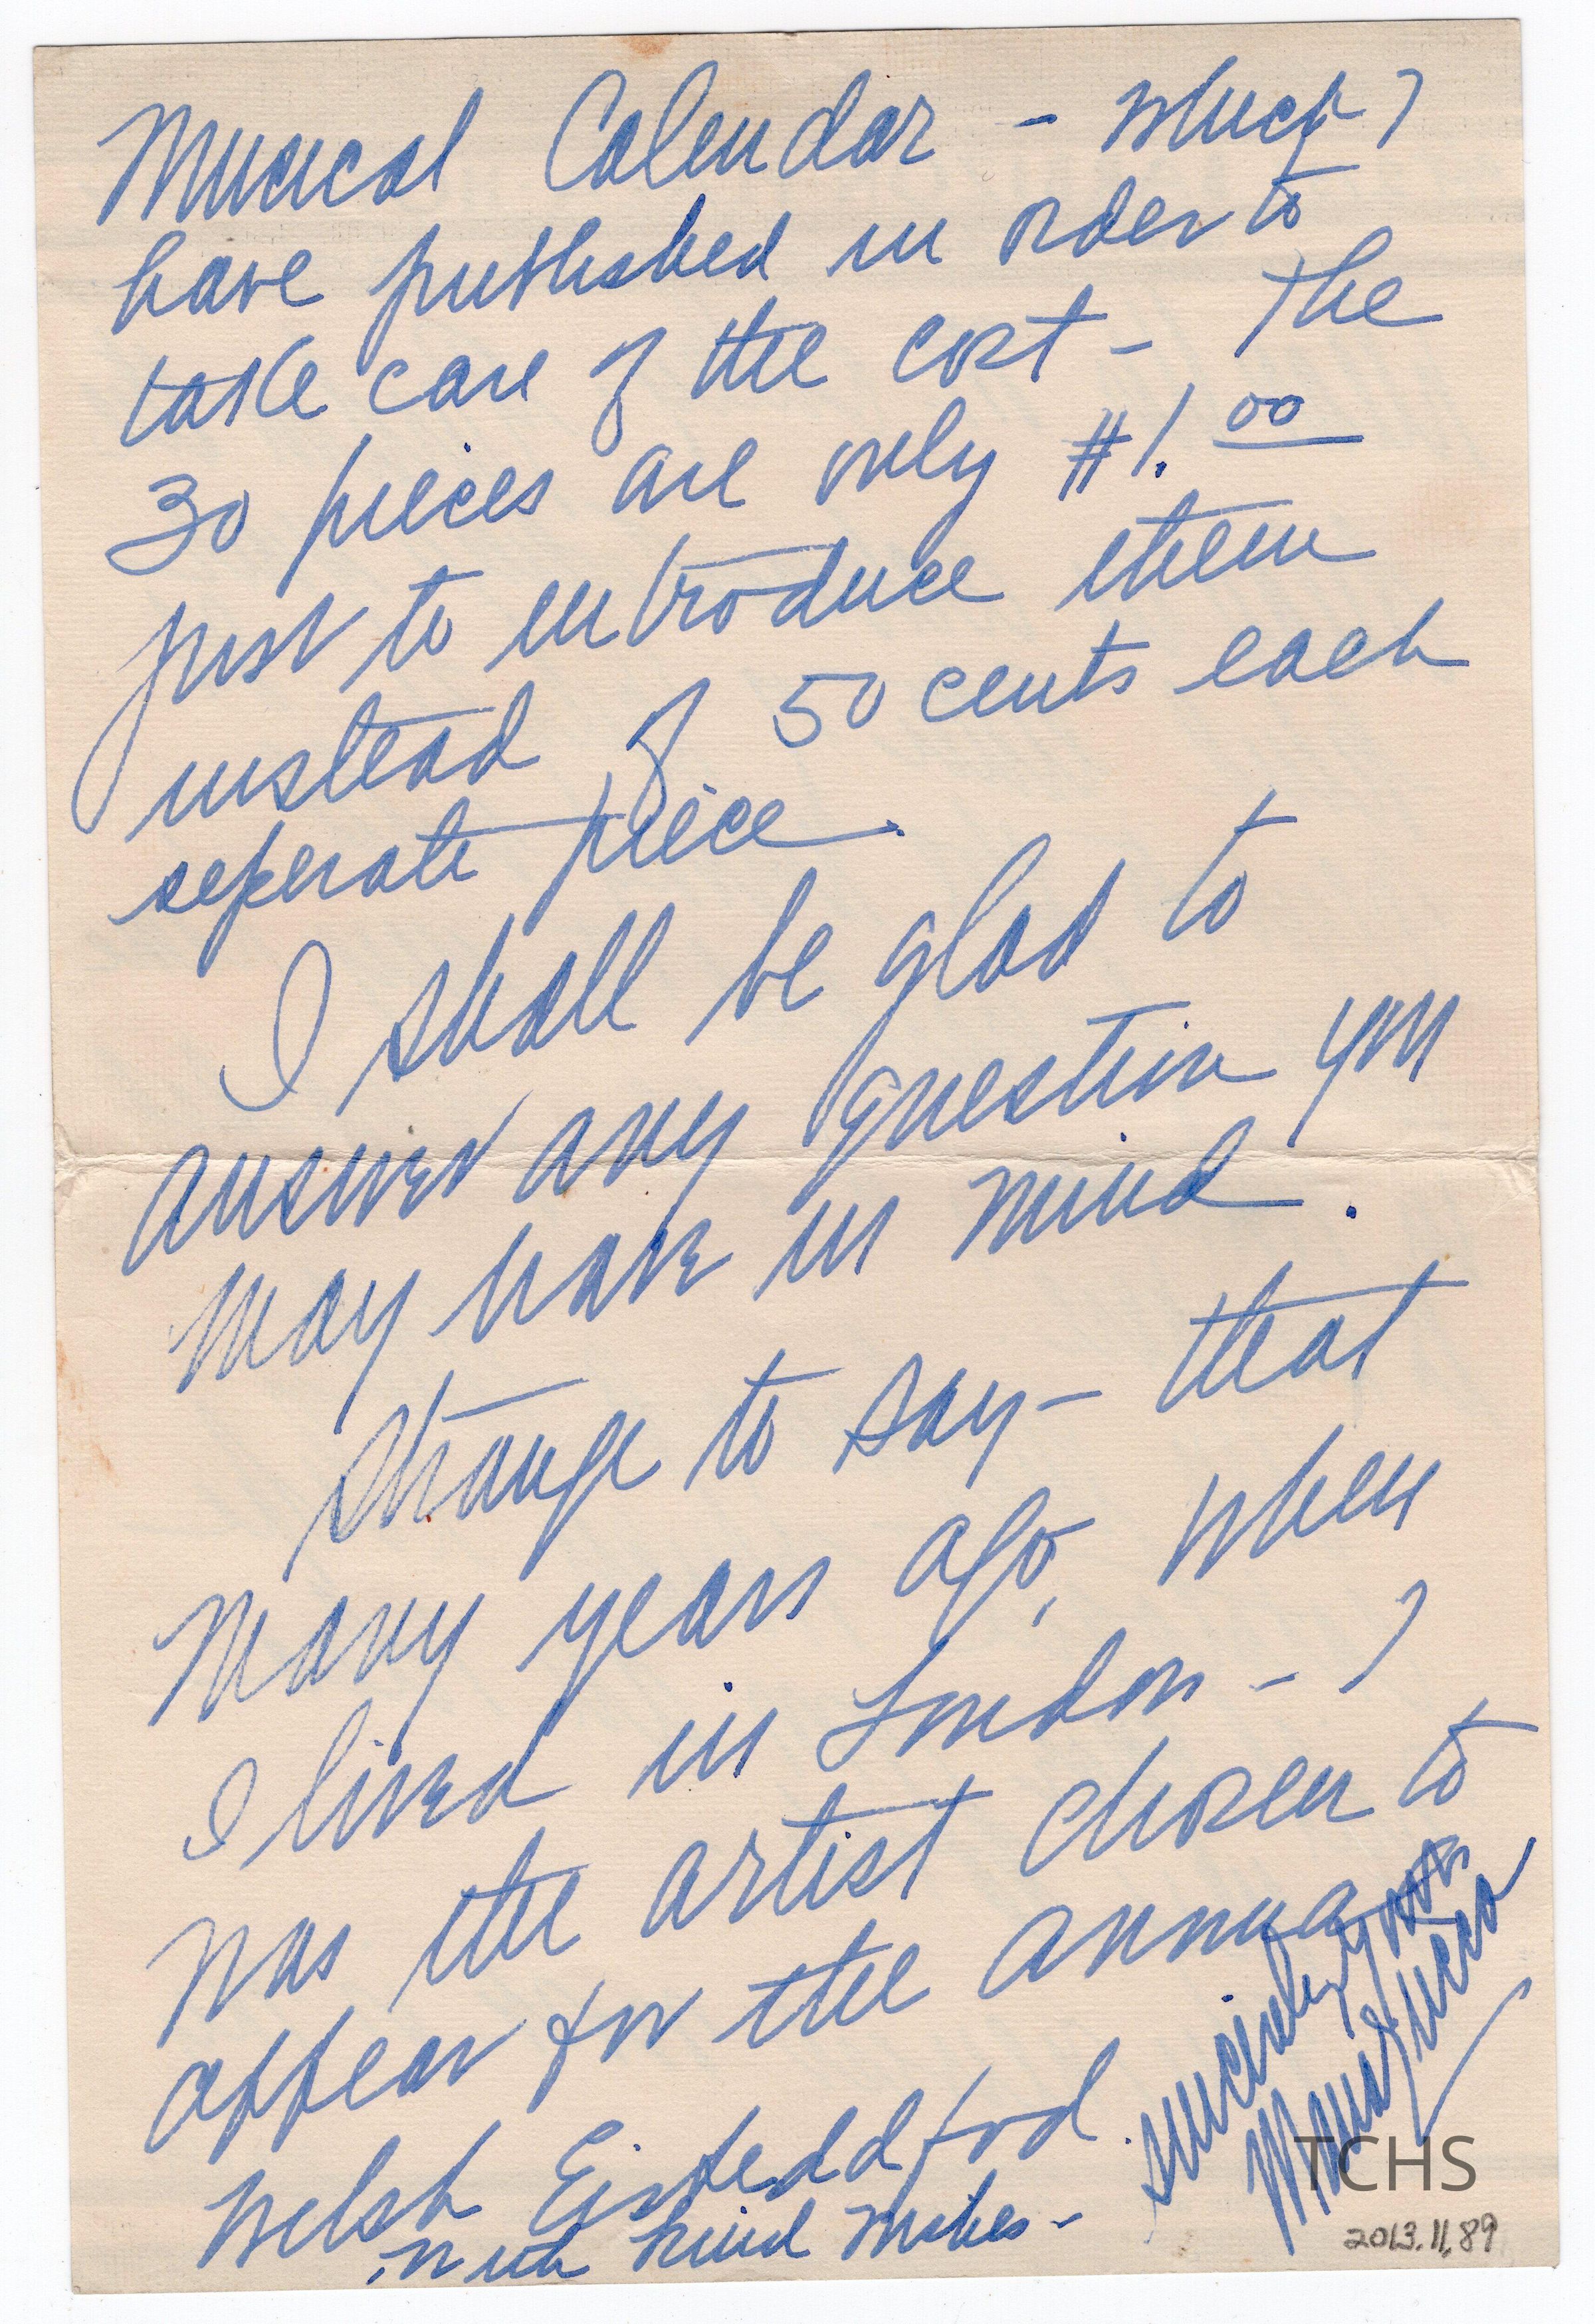 Musical Calendar - which I
have published in order to
take care of the cost - The
30 pieces are only $1.00
just to introduce them
instead of 50 cents each
seperate piece.
I shall be glad to
answer any question you
may have in mind.
Strange to say - that
many years ago, when
I lived in London - I
was the artist chosen to
appear for the annual
Welsh Eisteddfod.
With kind wishes -
Sincerely yours
Mana Zucca
TCHS
2013.11.89